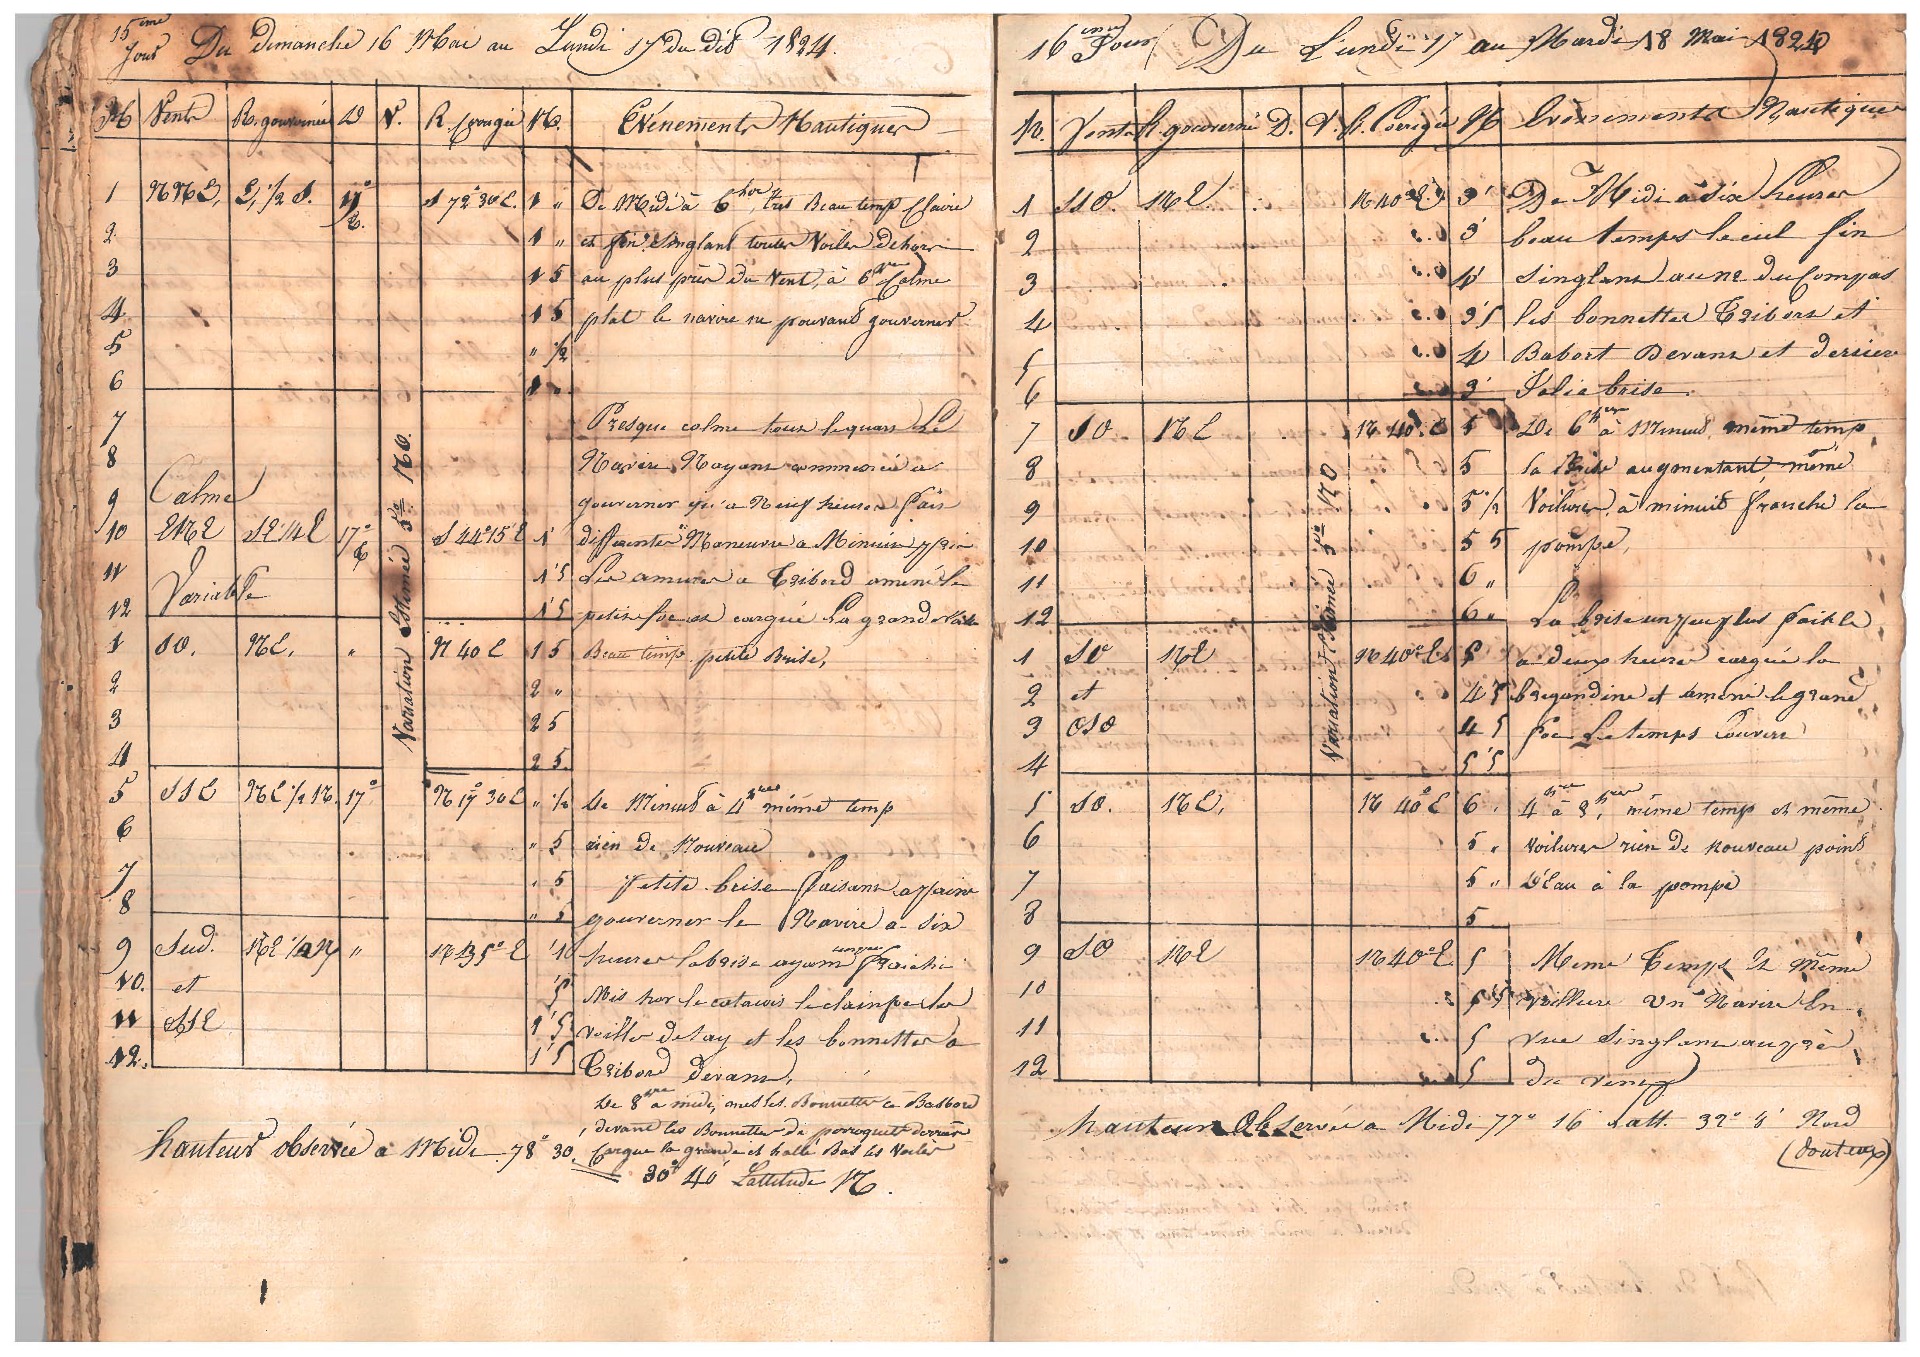 15ème Jour Du dimanche 16 Mai au Lundi 17 du dit 1824.
H Vents R. gouvernée D V. R. Corrigée M. Evénements Nautiques
1 NNE, E, 1/2 S. 17° S 72° 30' E. 1 " De Midi à 6 hres très Beau temp Claire
2 1 " et fin, Singlant toutes Voiles dehors
3 1 5 au plus près du Vent, à 6 hres Calme
4 1 5 plat le navire ne pouvant gouverner
5 " 1/2
6 1 "
7 Presque calme tout le quart Le
8 Navire Nayant commencé a
9 Calme gouverner qu'a Neuf heures fais
10 ENE SE 1/4 E 17° S 44° 15' E 1 differentes Maneuvre a Minuit pris
11 Variable 1 5 Les amures a Tribord amené le
12 1 5 petit foc et cargué La grand Voile
Variation Estimée 5° NO.
1 SO. NE. " N 40 E 1 5 Beau temp petite Brise,
2 2 "
3 2 5
4 2 5
5 SSE NE 1/2 N. 17° N 17° 30 E " 1/2 De Minuit à 4 hres même temp
6 " 5 rien de Nouveau
7 " 5 petite brise faisant a paine
8 " 5 gouverner le Navire a six
9 Sud. NE 1/2 N " N 35° E 1 heures la brise ayant un peu fraichi
10. et 5 Mis hor le catacois le clainfoc les
11 SSE 1 5 voilles detay et les bonnettes a
12. 1 5 Tribord devant,
De 8 hres a midi, mes les Bonnettes a Basbord
devant les Bonnettes de perroquet derrière
Cargue la grande et hallé Bas les Voiles
hauteur observée a Midi. 78° 30'.
30° 40' Lattitude N.
16 ème Jour Du Lundi 17 au Mardi 18 Mai 1824
H. Vents R. gouvernée D. V. R. Corrigée M Evènements Nautiques
1 SSO. NE. N 40° E 3' De Midi à Six heures
2 3' beau temps le ciel fin
3 4' Singlant au NE du Compas
4 3' 5 les bonnettes Tribord et
5 4 Babort Devant et derrier
6 3' Jolie brise
7 SO NE N 40° E 5 De 6 hres à Minuit même temp
8 5 la Brise augmentant, même
9 5 1/2 Voilures, à minuit franche la
10 5 5 pompe,
11 6 "
12 6 " La brise un peu plus faible
Variation Estimée 5° NO
1 SO NE N 40° E 5 a deux heures cargué la
2 et 4 5 bregandine et amené le grand
3 OSO 4 5 foc Le temps Couvert
4 5 5
5 SO. NE, N 40° E 6 4 à 8 hres, même temp et même
6 5 " Voilures rien de nouveau point
7 5 " D'Eau à la pompe
8 5
9 SO NE N 40° E. 5 Meme Temps Et même
10 5 5 voillure Un Navire En
11 5 vue Singlant au près
12 5 du vent
hauteur Observée a Midi 77° 16 Latt. 32° 4' Nord
(douteux)